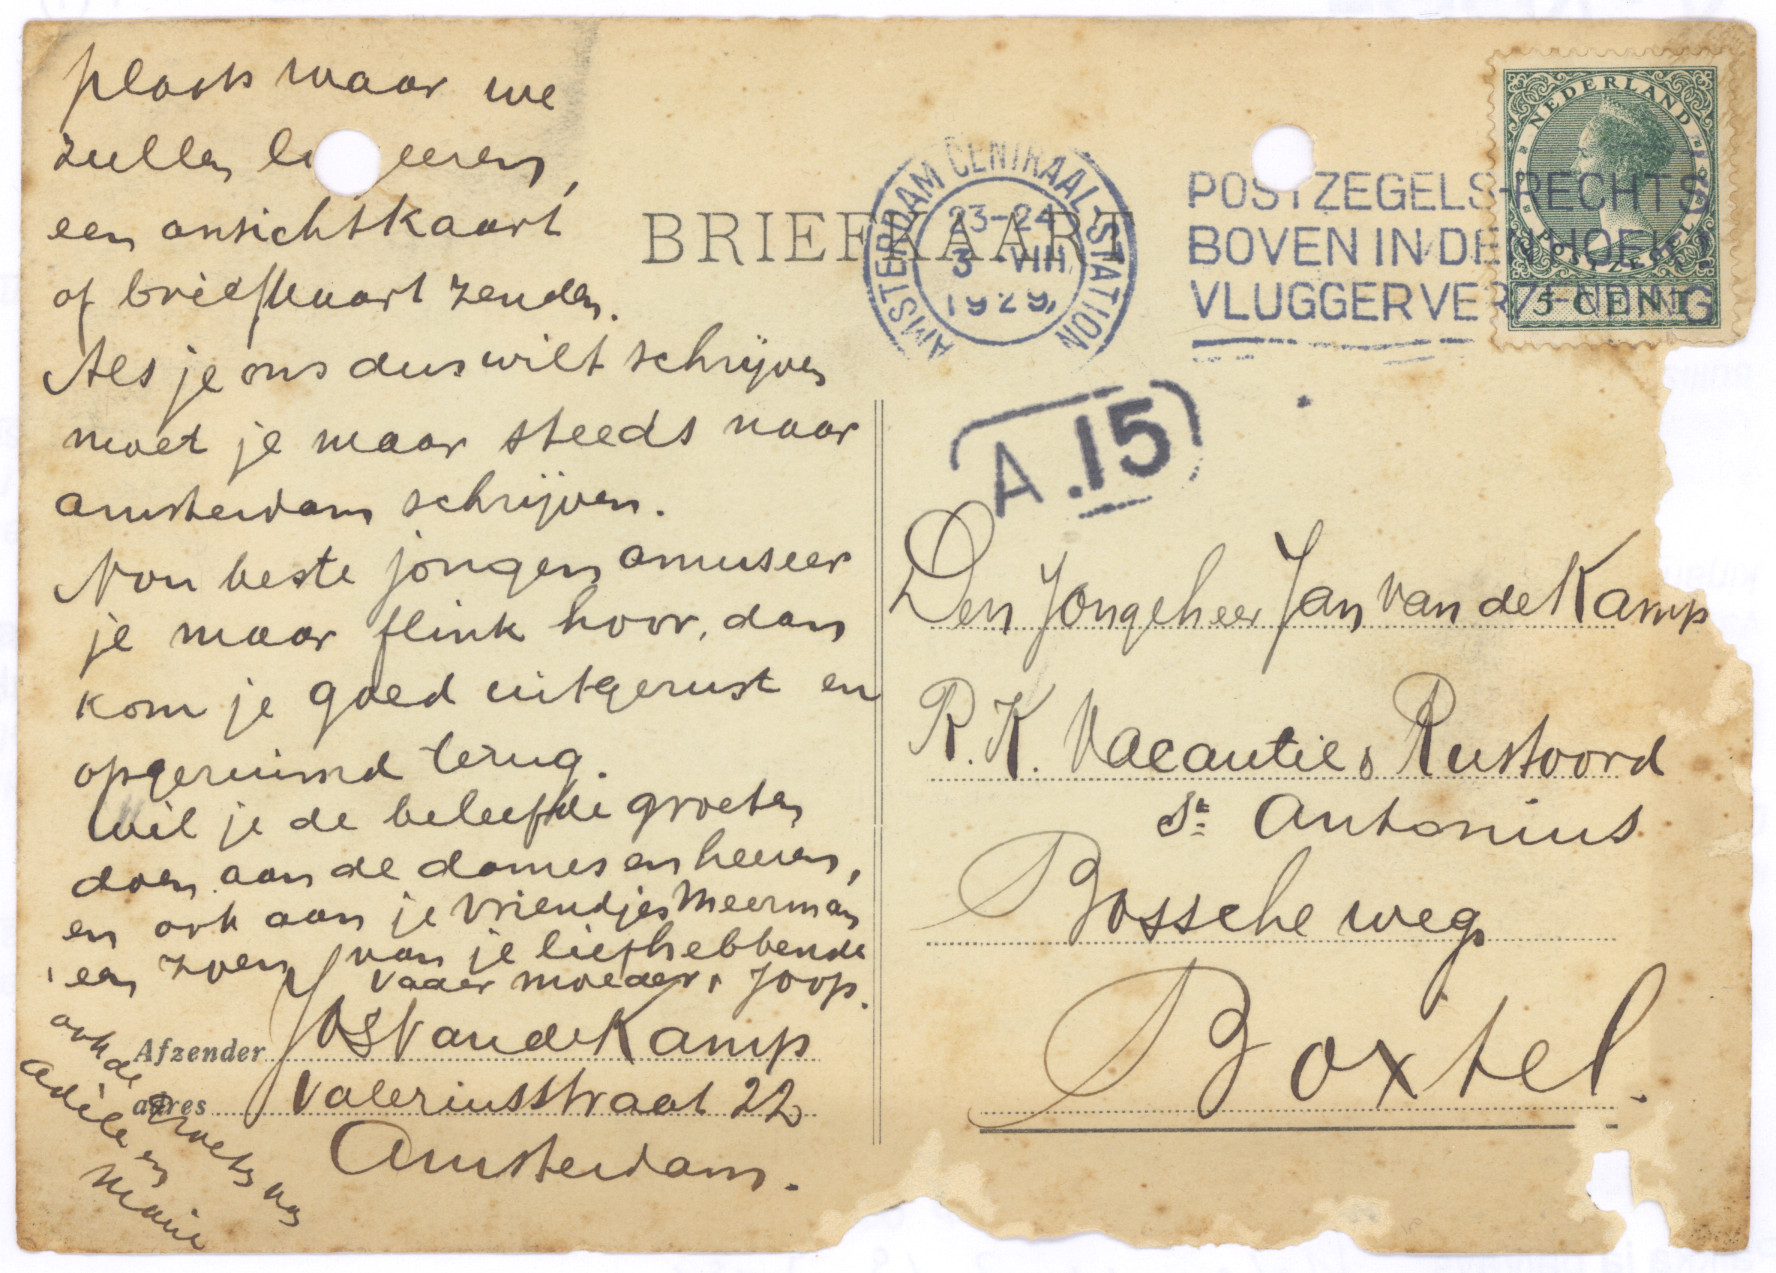 plaats waar we
zullen lo geeren,
een ansichtkaart
of briefkaart zenden.
Als je ons dus wilt schrijven
moet je maar steeds naar
Amsterdam schrijven.
Nou beste jongen amuseer
je maar flink hoor, dan
kom je goed uitgerust en
opgeruimd terug.
Wil je de beleefde groeten
doen aan de dames en heeren,
en ook aan je vriendjes Meerman
een zoen van je liefhebbende
Vader Moeder, Joop.
ook de groeten van
Adèle en
Marie
Afzender Jos Van de Kamp
adres Valeriusstraat 22
Amsterdam.
BRIEFKAART
AMSTERDAM CENTRAAL-STATION
23-24
3 VIII
1929
POSTZEGELS RECHTS
BOVEN IN DEN HOEK!
VLUGGER VERZENDING
NEDERLAND
POSTZEGEL
5 CENT
A.15
Den Jongeheer Jan van de Kamp
R.K. Vacantie & Rustoord
St. Antonius
Bossche weg
Boxtel.